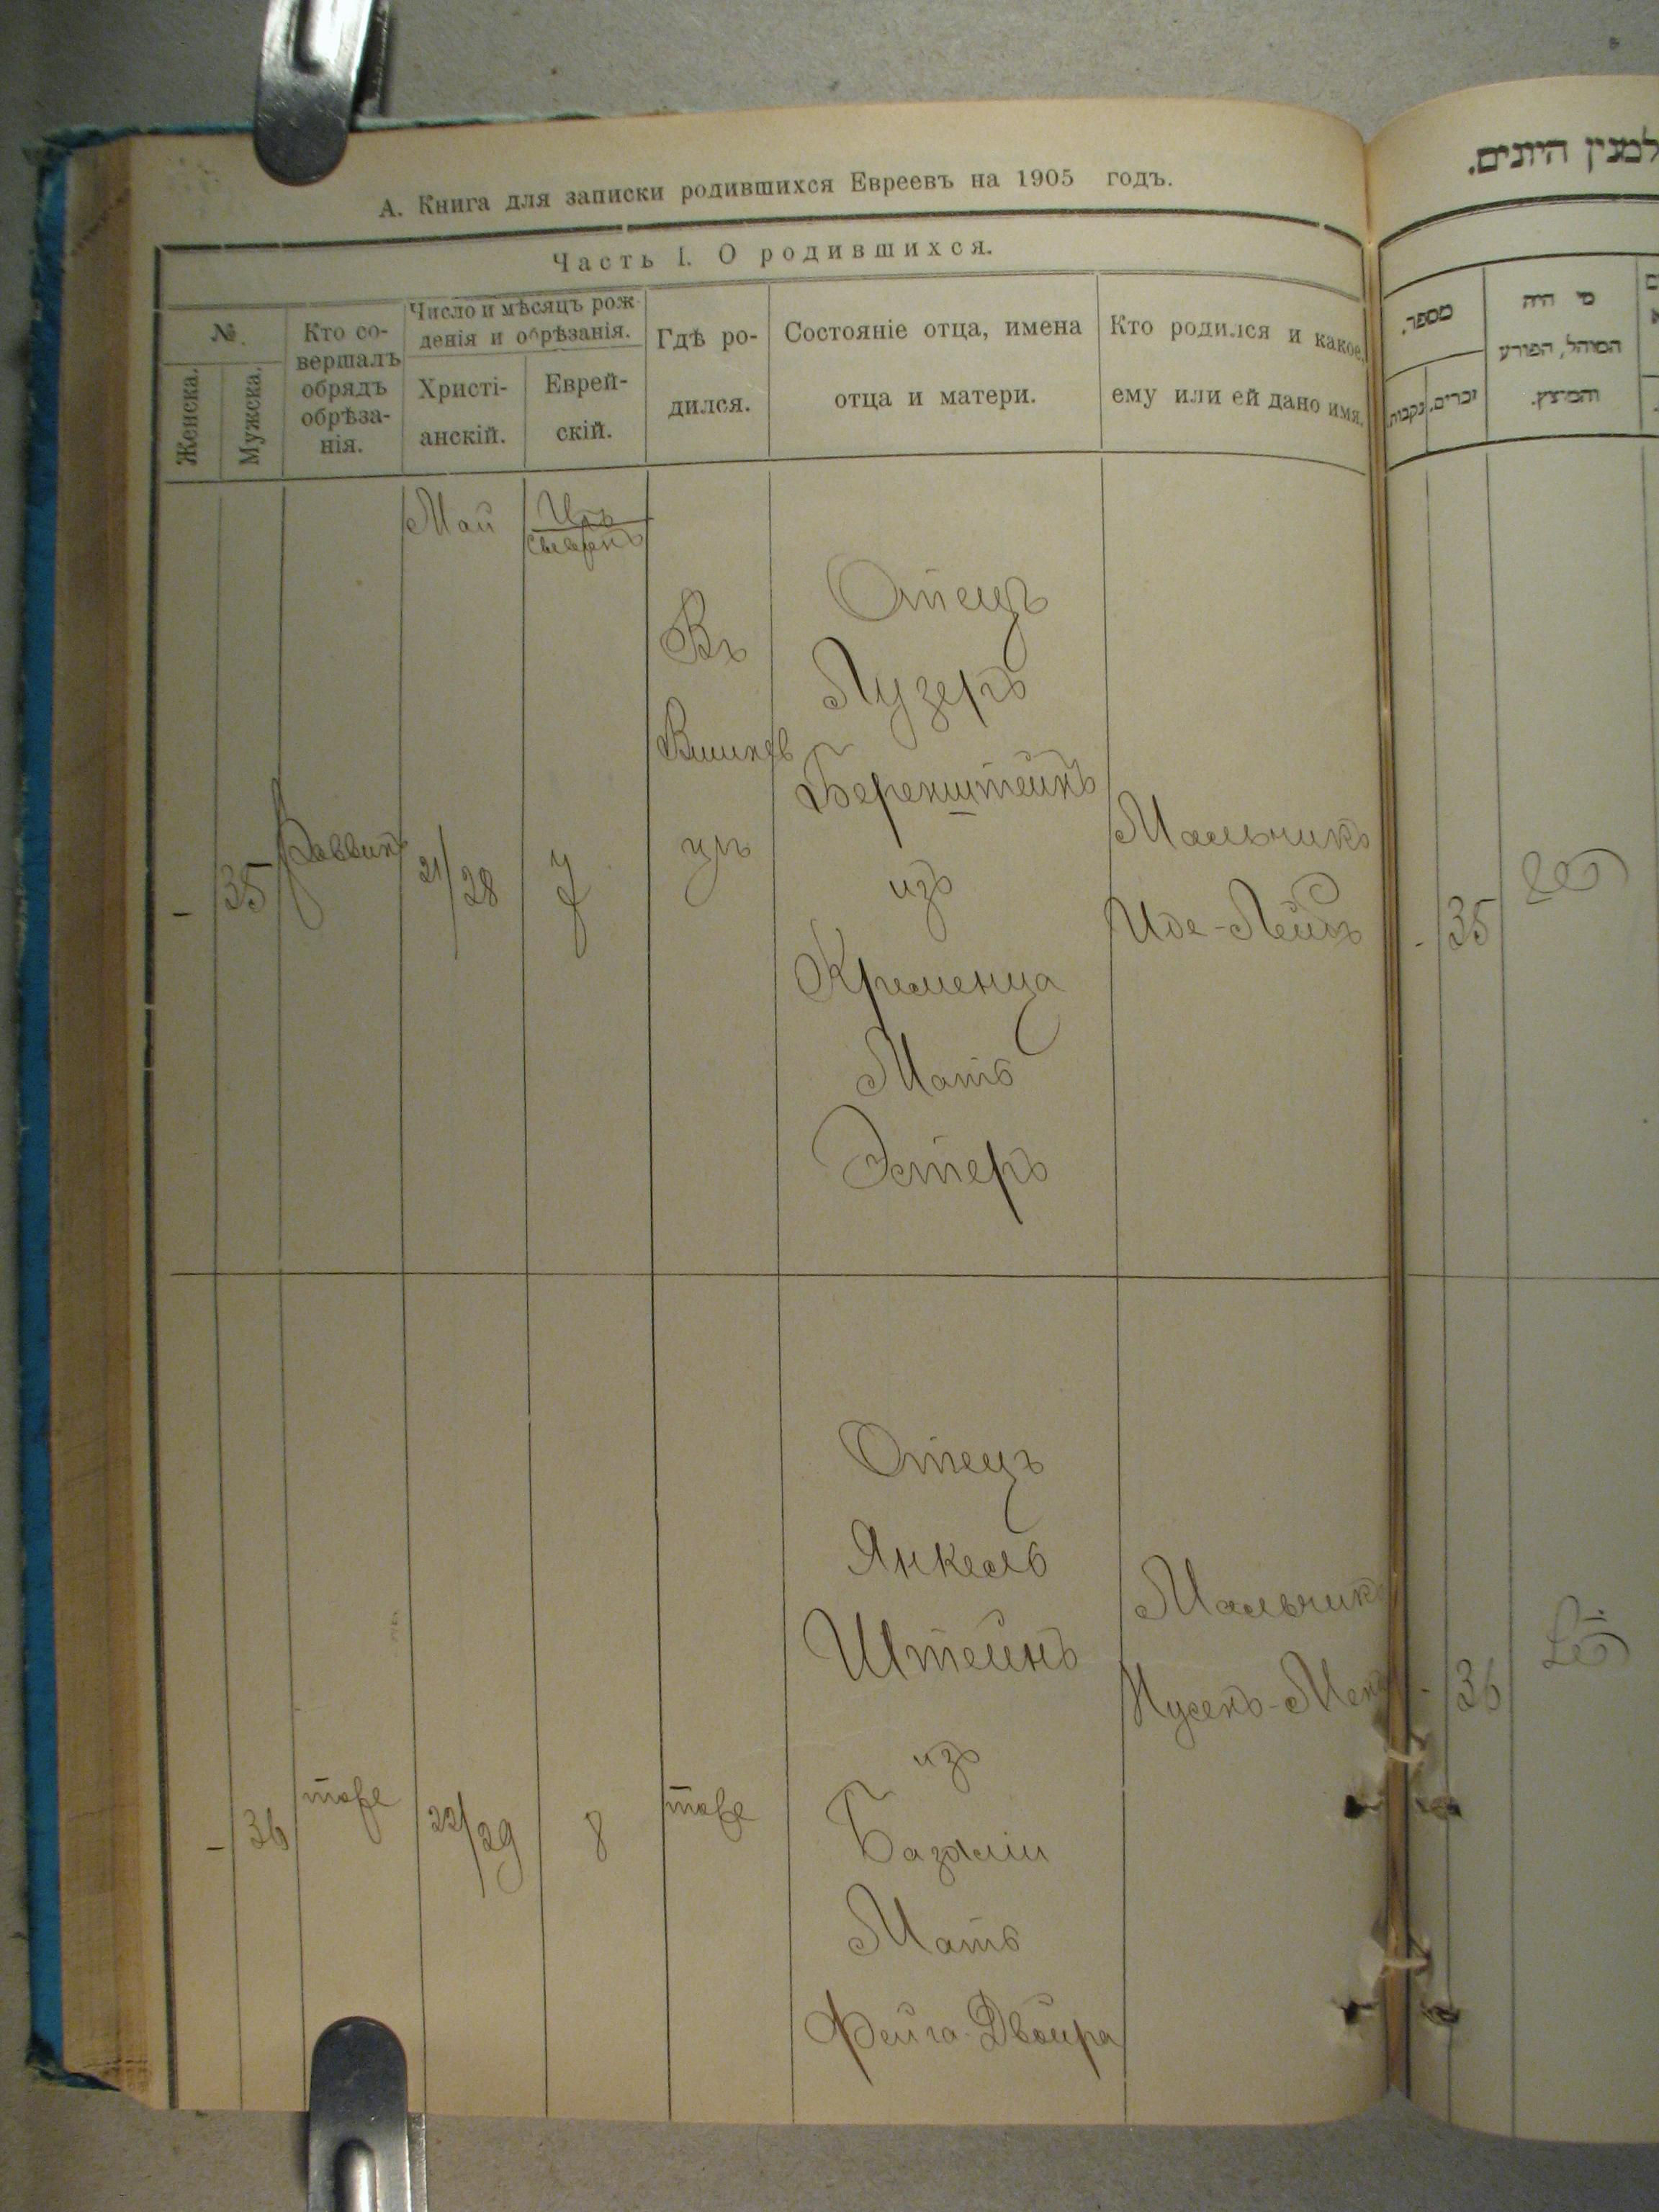 А. Книга для записки родившихся Евреевъ на 1905 годъ.
Часть I. О родившихся.
№.
Женска.
Мужска.
Кто со-
вершалъ
обрядъ
обрѣза-
нія.
Число и мѣсяцъ рож-
денія и обрѣзанія.
Христі-
анскій.
Еврей-
скій.
Гдѣ ро-
дился.
Состояніе отца, имена
отца и матери.
Кто родился и какое
ему или ей дано имя.
-
35
Раввинъ
Май
21/28
Въ
Вишнев
цѣ
Отецъ
Лузеръ
Беренштейнъ
изъ
Кременца
Мать
Эстеръ
Мальчикъ
Иде-Лейбъ
-
36
тоже
22/29
8
тоже
Отецъ
Янкель
Штейнъ
изъ
Базаліи
Мать
Фейга-Двойра
Мальчикъ
למנין היונים.
מספר.
זכרים.
נקבות.
מי היה
המוהל, הפורע
והמוצץ.
-
35
-
36